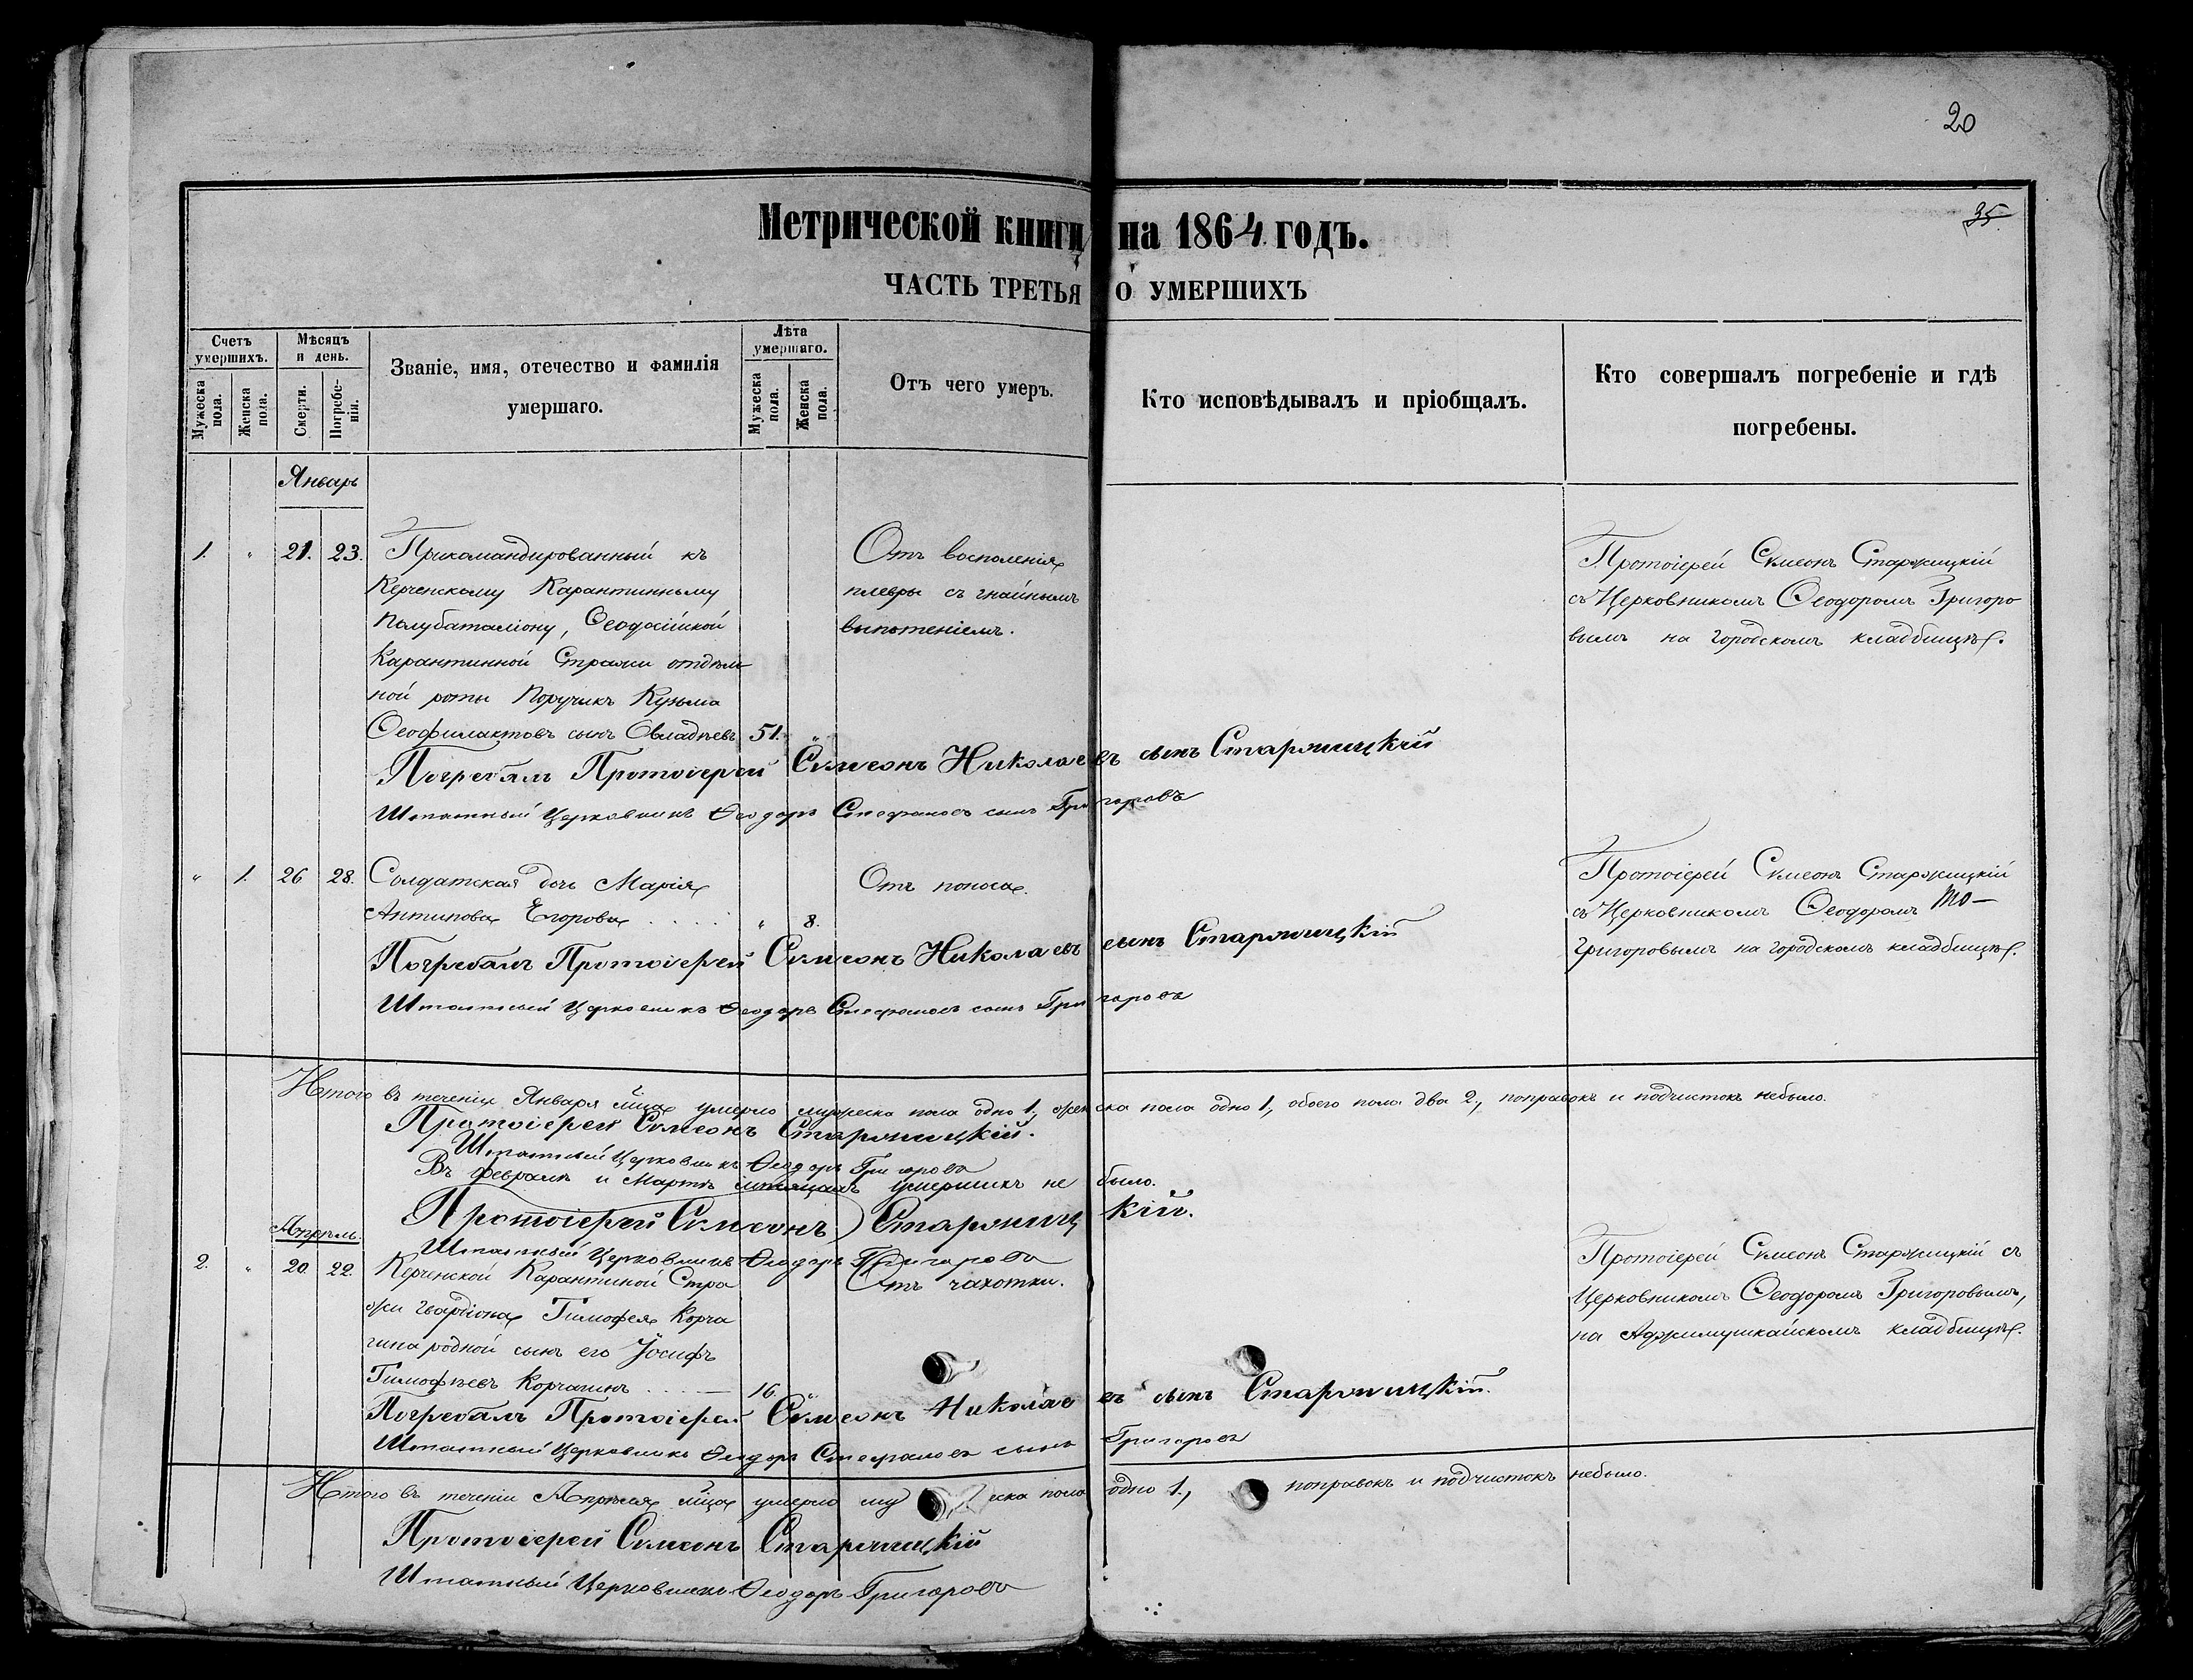 20
35
Метрической книги на 1864 годъ.
ЧАСТЬ ТРЕТЬЯ О УМЕРШИХЪ
Счетъ умершихъ.
Мѣсяцъ и день.
Званіе, имя, отечество и фамилія умершаго.
Лѣта умершаго.
Отъ чего умеръ.
Кто исповѣдывалъ и пріобщалъ.
Кто совершалъ погребеніе и гдѣ погребены.
Мужеска пола.
Женска пола.
Смерти.
Погребенія.
Мужеска пола.
Женска пола.
Январь
1. " 21. 23.
Прикомандированный къ
Керченскому Карантинному
Полубаталіону, Ѳеодосійской
Карантинной Стражи отдѣль
ной роты Поручикъ Кузьма
Ѳеофилактовъ сынъ Овладѣевъ 51. "
Отъ восполенія
плевры съ гнойнымъ
выпотеніемъ.
Протоіерей Сѵмеонъ Старжицкій
съ Церковникомъ Ѳеодоромъ Григоро
вымъ на городскомъ кладбищѣ.
Погребалъ Протоіерей Сѵмеонъ Николаевъ сынъ Старжицкій
Штатный Церковникъ Ѳеодоръ Стефановъ сынъ Григоровъ
" 1. 26 28.
Солдатская дочь Марія
Антипова Егорова " 8.
Отъ поноса.
Протоіерей Сѵмеонъ Старжицкій
съ Церковникомъ Ѳеодоромъ
Григоровымъ на городскомъ кладбищѣ.
Погребалъ Протоіерей Сѵмеонъ Николаевъ сынъ Старжицкій
Штатный Церковникъ Ѳеодоръ Стефановъ сынъ Григоровъ
Итого въ теченіи Января м̃ца умерло мужеска пола одно 1, женска пола одно 1, обоего пола два 2, поправокъ и подчистокъ небыло.
Протоіерей Сѵмеонъ Старжицкій.
Штатный Церковникъ Ѳеодоръ Григоровъ
Въ Февралѣ и Мартѣ мѣсяцахъ умершихъ не было.
Протоіерей Сѵмеонъ Старжицкій.
Штатный Церковникъ Ѳеодоръ Григоровъ
Апрѣль.
2. " 20. 22.
Керченской Карантиной Стра
жи гвардіона Тимофея Корча
гина родной сынъ его Іосифъ
Тимофѣевъ Корчагинъ 16. "
Отъ чахотки.
Протоіерей Сѵмеонъ Старжицкій съ
Церковникомъ Ѳеодоромъ Григоровымъ,
на Аджимушкайскомъ кладбищѣ.
Погребалъ Протоіерей Сѵмеонъ Николаевъ сынъ Старжицкій.
Штатный Церковникъ Ѳеодоръ Стефановъ сынъ Григоровъ
Итого въ теченіи Апрѣля м̃ца умерло му ска пола одно 1, поправокъ и подчистокъ небыло.
Протоіерей Сѵмеонъ Старжицкій
Штатный Церковникъ Ѳеодоръ Григоровъ